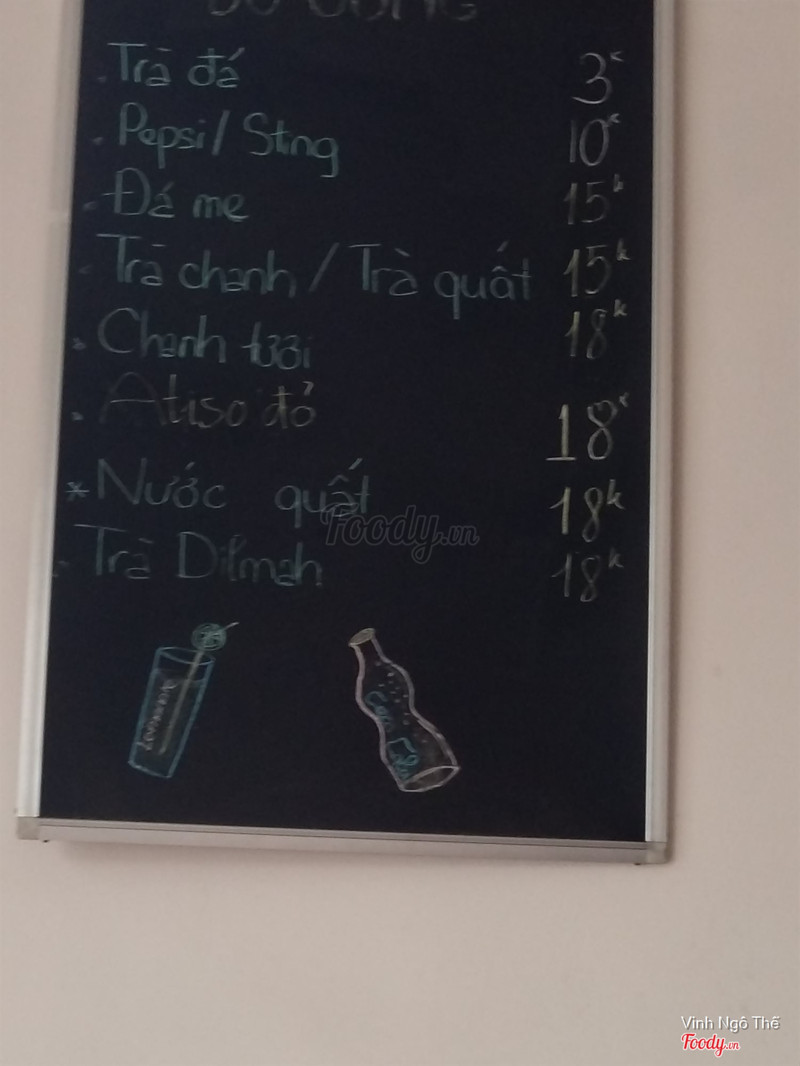 ĐỒ UỐNG
- Trà đá 3k
- Pepsi/ Sting 10k
- Đá me 15k
- Trà chanh / Trà quất 15k
- Chanh tươi 18k
- Atiso đỏ 18k
* Nước quất 18k
- Trà Dilmah 18k
Foody.vn
Lemonade
Vinh Ngô Thế
Foody.vn